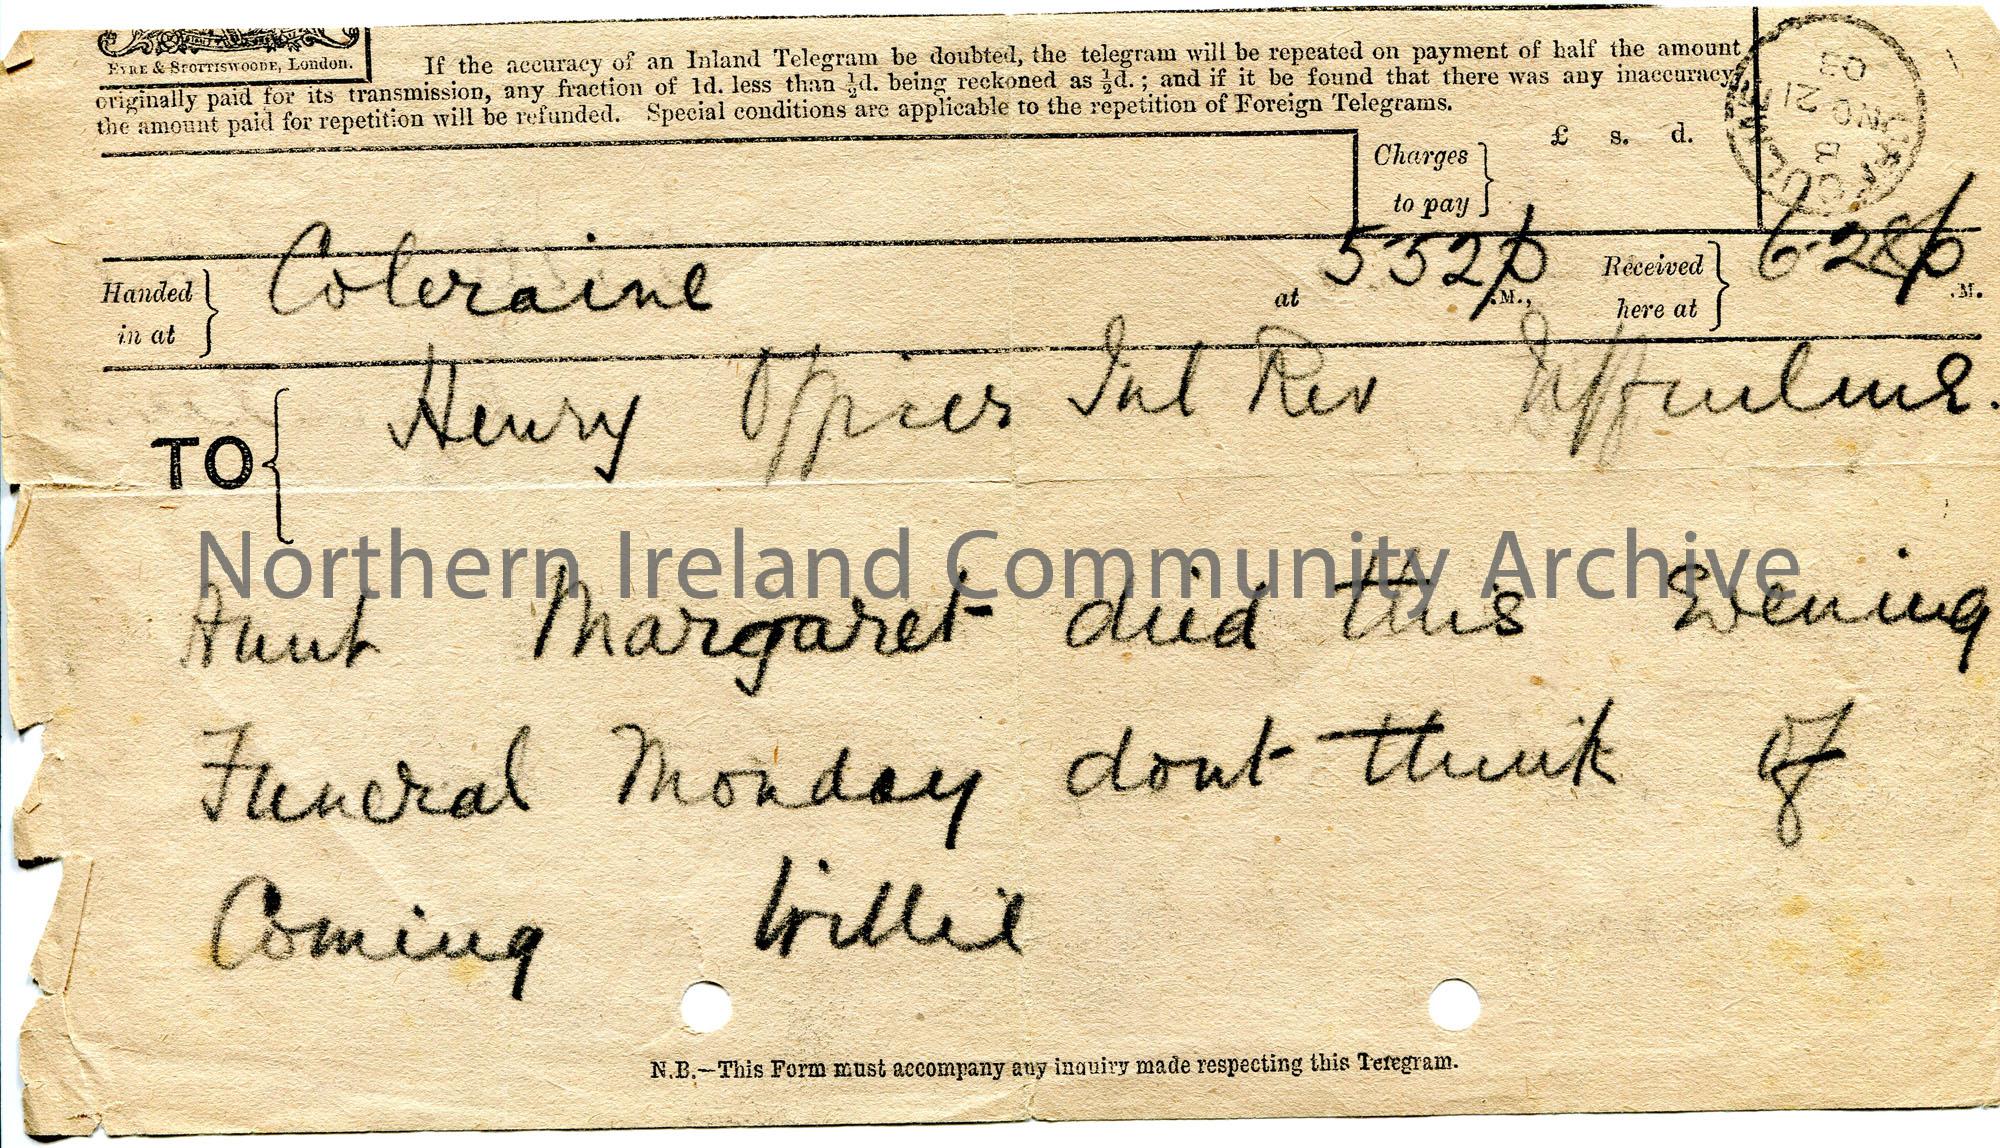 EYRE & SPOTTISWOODE, London.
If the accuracy of an Inland Telegram be doubted, the telegram will be repeated on payment of half the amount
originally paid for its transmission, any fraction of 1d. less than ½d. being reckoned as ½d.; and if it be found that there was any inaccuracy,
the amount paid for repetition will be refunded. Special conditions are applicable to the repetition of Foreign Telegrams.
Charges to pay } £ s. d.
Handed in at } Coleraine at 5 32 p .M., Received here at } 6-28 p .M.
TO { Henry Officer Inl Rev
Northern Ireland Community Archive
Aunt Margaret died this Evening
Funeral Monday dont think of
Coming Willie
N.B.—This Form must accompany any inquiry made respecting this Telegram.